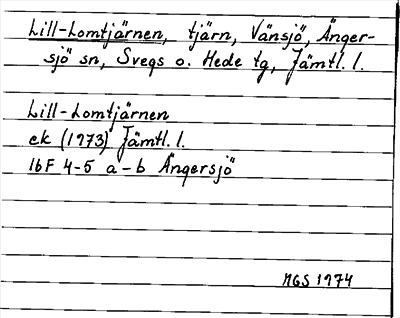 Lill-Lomtjärnen, tjärn, Vänsjö, Änger-
sjö sn, Svegs o. Hede tg, Jämtl. l.
Lill-Lomtjärnen
ek (1973) Jämtl. l.
16F 4-5 a-b Ängersjö
MGS 1974